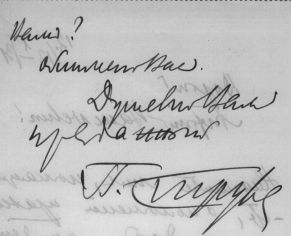 Вами?
Обнимаю Вас.
Душевно Вам
преданный
П. Струве